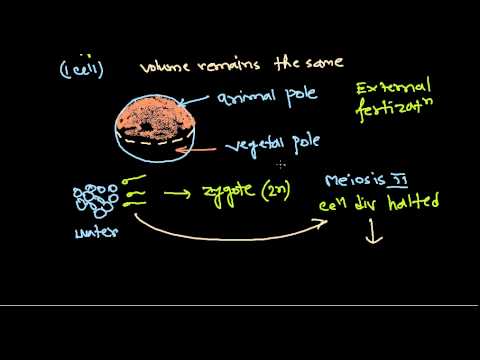 (1 cell) volume remains the same
animal pole
External
fertizatn
vegetal pole
zygote (2n)
Meiosis II
cell div halted
water